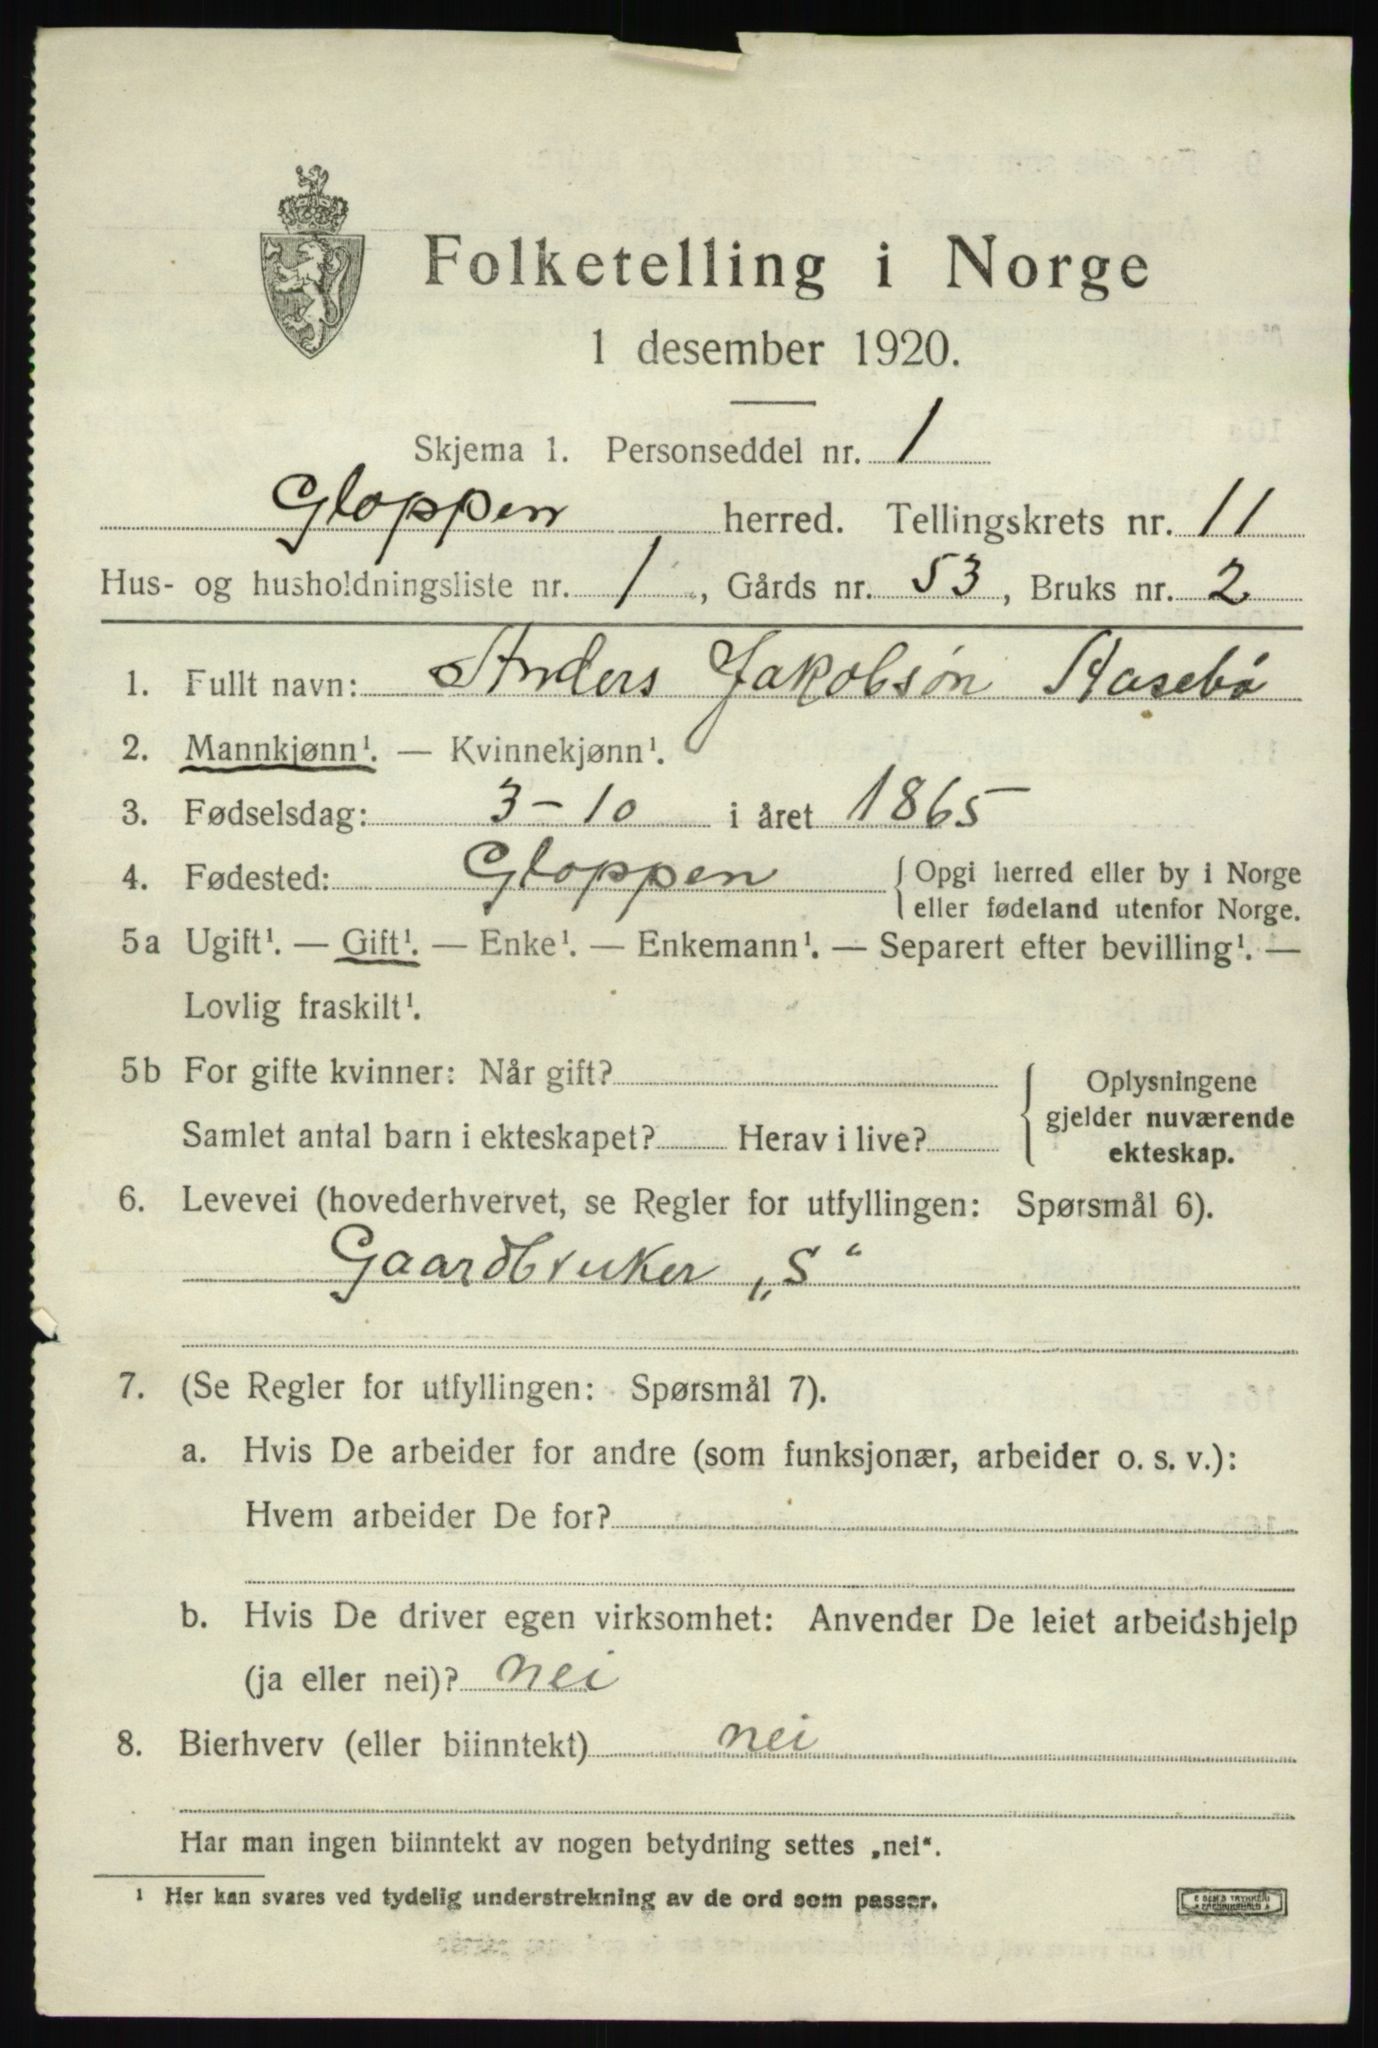 Folketelling i Norge
1 desember 1920.
Skjema 1. Personseddel nr. 1
Gloppen herred. Tellingskrets nr. 11
Hus- og husholdningsliste nr. 1, Gårds nr. 53, Bruks nr. 2
1. Fullt navn: Anders Jakobsøn Aasebø
2. Mannkjønn¹. — Kvinnekjønn¹.
3. Fødselsdag: 3-10 i året 1865
4. Fødested: Gloppen { Opgi herred eller by i Norge
eller fødeland utenfor Norge.
5a Ugift¹. — Gift¹. — Enke¹. — Enkemann¹. — Separert efter bevilling¹. —
Lovlig fraskilt¹.
5b For gifte kvinner: Når gift?
Samlet antal barn i ekteskapet? Herav i live?
Oplysningene
gjelder nuværende
ekteskap.
6. Levevei (hovederhvervet, se Regler for utfyllingen: Spørsmål 6).
Gaardbruker „S“
7. (Se Regler for utfyllingen: Spørsmål 7).
a. Hvis De arbeider for andre (som funksjonær, arbeider o. s. v.):
Hvem arbeider De for?
b. Hvis De driver egen virksomhet: Anvender De leiet arbeidshjelp
(ja eller nei)? nei
8. Bierhverv (eller biinntekt) nei
Har man ingen biinntekt av nogen betydning settes „nei“.
¹ Her kan svares ved tydelig understrekning av de ord som passer.